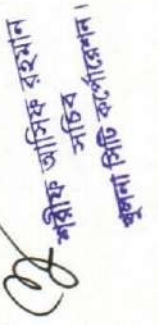 শরীফ আসিফ রহমান
সচিব
খুলনা সিটি কর্পোরেশন।